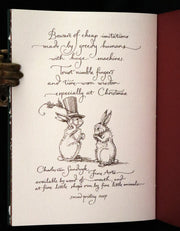 Beware of cheap imitations
made by greedy humans
with huge machines
Trust nimble fingers
and time-worn wisdom
especially at Christmas
Charles van Sandwyk Fine Arts
available by word of mouth, and
at fine little shops run by fine little animals